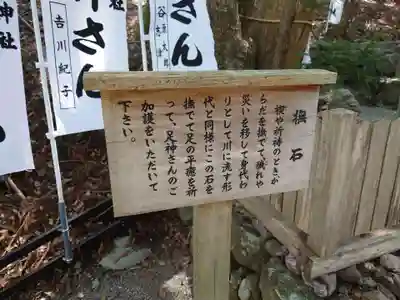 撫石
禊や祈祷のとき、か
らだを撫でて、穢れや
災いを移して身代わ
りとして川に流す形
代と同様にこの石を
撫でて足の平癒を祈
って、足神さんのご
加護をいただいて
下さい。
神さん
さん
吉川紀子
神社